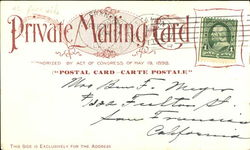 Private Mailing Card
AUTHORIZED BY ACT OF CONGRESS OF MAY 19, 1898.
(POSTAL CARD—CARTE POSTALE)
Mrs. F. Meyer
Fulton St.
San Francisco
California
THIS SIDE IS EXCLUSIVELY FOR THE ADDRESS